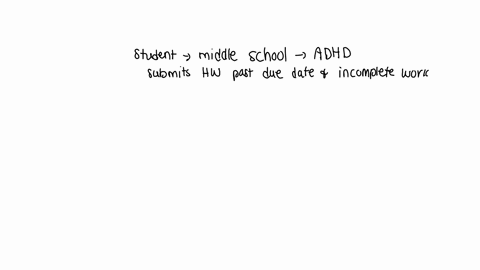 Student → middle school → ADHD
submits HW past due date & incomplete work